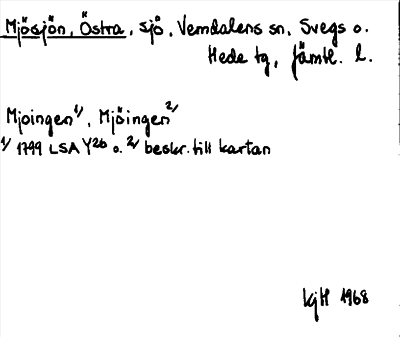 Mjösjön, Östra, sjö, Vemdalens sn, Svegs o.
Hede tg, Jämtl. l.
Mjoingen 1/, Mjöingen 2/
1/ 1799 LSA Y26 o. 2/ beskr. till kartan
KjH 1968